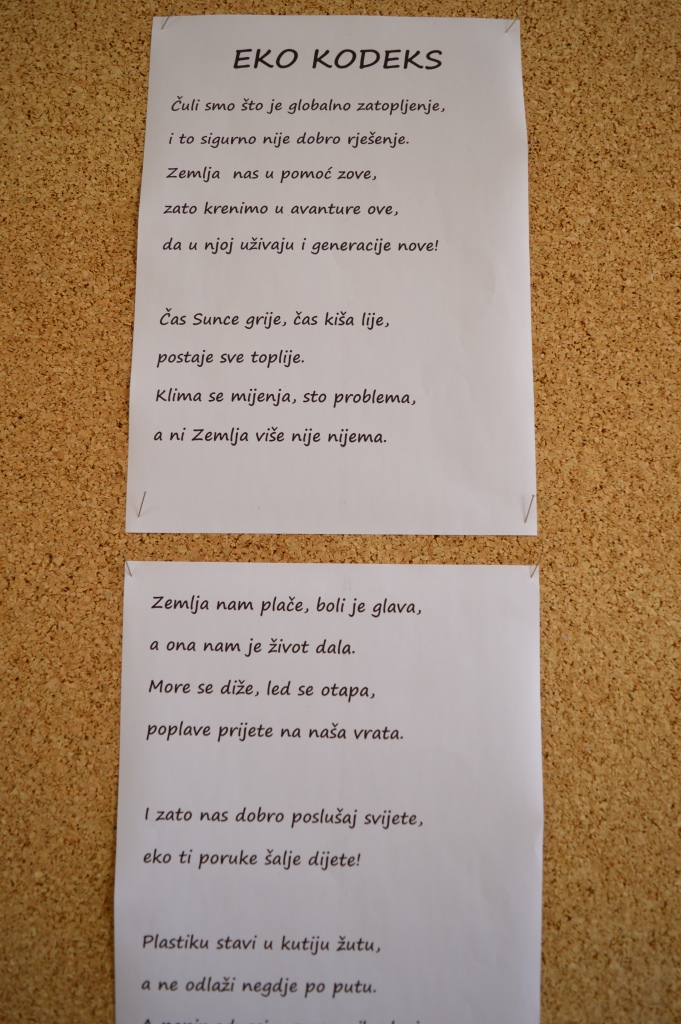 EKO KODEKS
Čuli smo što je globalno zatopljenje,
i to sigurno nije dobro rješenje.
Zemlja nas u pomoć zove,
zato krenimo u avanture ove,
da u njoj uživaju i generacije nove!
Čas Sunce grije, čas kiša lije,
postaje sve toplije.
Klima se mijenja, sto problema,
a ni Zemlja više nije nijema.
Zemlja nam plače, boli je glava,
a ona nam je život dala.
More se diže, led se otapa,
poplave prijete na naša vrata.
I zato nas dobro poslušaj svijete,
eko ti poruke šalje dijete!
Plastiku stavi u kutiju žutu,
a ne odlaži negdje po putu.